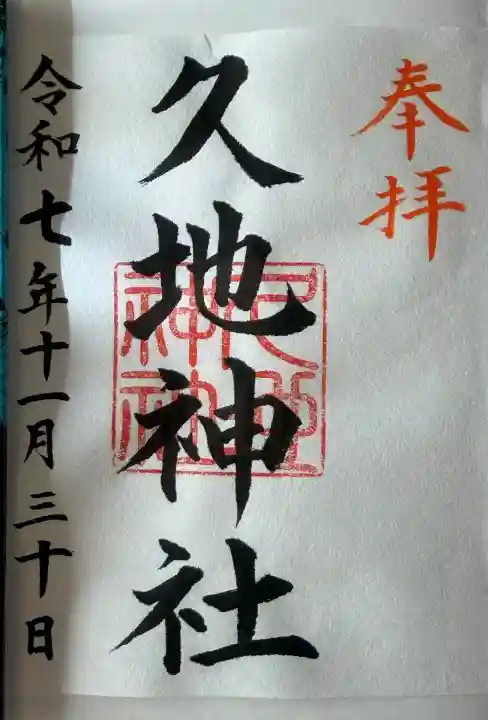 奉拝
久地神社
久地
神社
令和七年十一月三十日